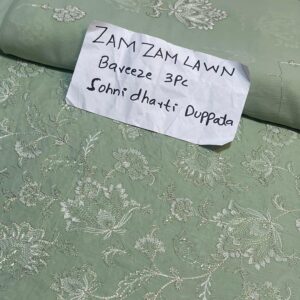 ZAM ZAM LAWN
Bareeze 3Pc
Sohni dharti Duppata